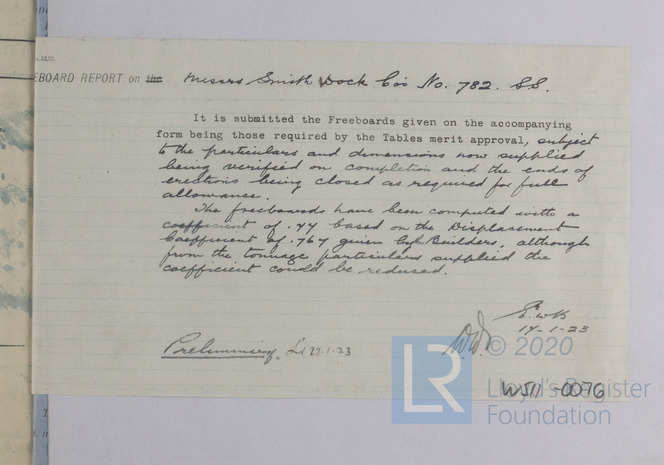 EBOARD REPORT on the Messrs Smith Dock Co's No. 782. SS.
It is submitted the Freeboards given on the accompanying
form being those required by the Tables merit approval, subject
to the particulars and dimensions now supplied
being verified on completion and the ends of
erections being closed as required for full
allowance.
The freeboards have been computed with a
coefficient of .77 based on the Displacement
Coefficient of .767 given by Builders, although
from the tonnage particulars supplied the
coefficient could be reduced.
E.W.B
17-1-23
Preliminary. 23.1.23
© 2020
LR
Lloyd's Register
Foundation
W511-0076